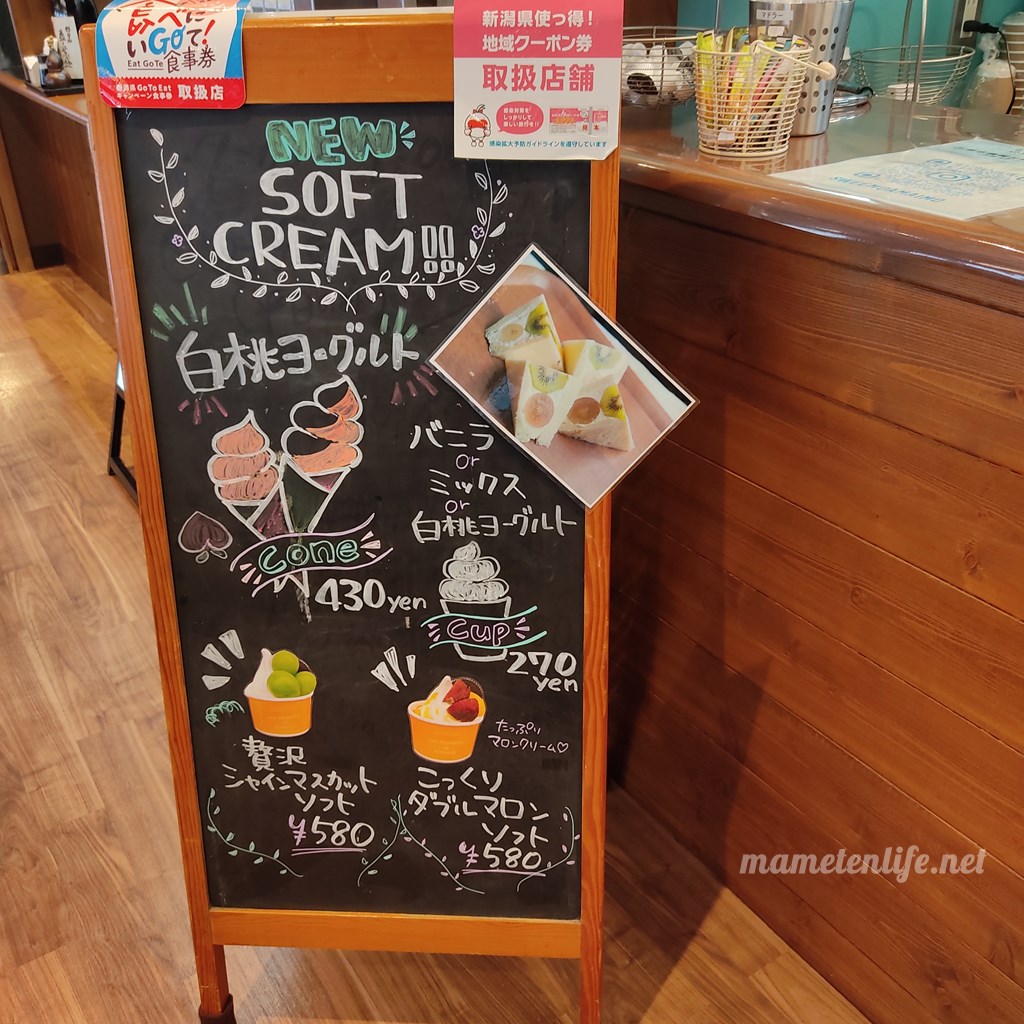 食べに
いGoて!
Eat GoTo 食事券
新潟県 GoTo Eat
キャンペーン食事券 取扱店
新潟県使っ得!
地域クーポン券
取扱店舗
感染対策を
しっかりして
楽しい旅行を!!
見本
感染拡大予防ガイドラインを遵守しています
マドラー
NEW
SOFT
CREAM!!
白桃ヨーグルト
バニラ
or
ミックス
or
白桃ヨーグルト
Cone
430yen
Cup
270
yen
贅沢
シャインマスカット
ソフト
¥580
たっぷり
マロンクリーム♡
こっくり
ダブルマロン
ソフト
¥580
mametenlife.net